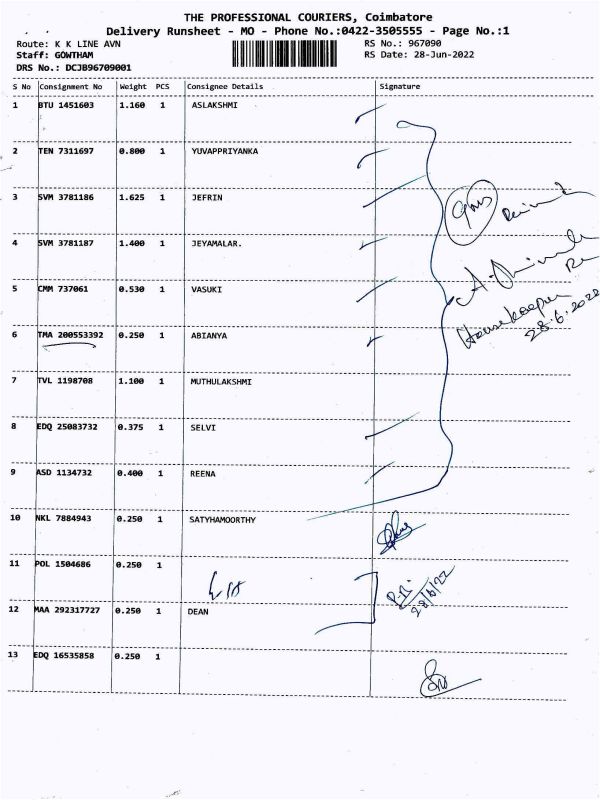 THE PROFESSIONAL COURIERS, Coimbatore
Delivery Runsheet - MO - Phone No.:0422-3505555 - Page No.:1
Route: K K LINE AVN
RS No.: 967090
Staff: GOWTHAM
RS Date: 28-Jun-2022
DRS No.: DCJB96709001
S No Consignment No Weight PCS Consignee Details Signature
1 BTU 1451603 1.160 1 ASLAKSHMI
2 TEN 7311697 0.800 1 YUVAPPRIYANKA
3 SVM 3781186 1.625 1 JEFRIN
4 SVM 3781187 1.400 1 JEYAMALAR.
5 CMM 737061 0.530 1 VASUKI
Housekeeper
28.6.2022
6 TMA 200553392 0.250 1 ABIANYA
7 TVL 1198708 1.100 1 MUTHULAKSHMI
8 EDQ 25083732 0.375 1 SELVI
9 ASD 1134732 0.400 1 REENA
10 NKL 7884943 0.250 1 SATYHAMOORTHY
11 POL 1504686 0.250 1
28/6/22
12 MAA 292317727 0.250 1 DEAN
13 EDQ 16535858 0.250 1